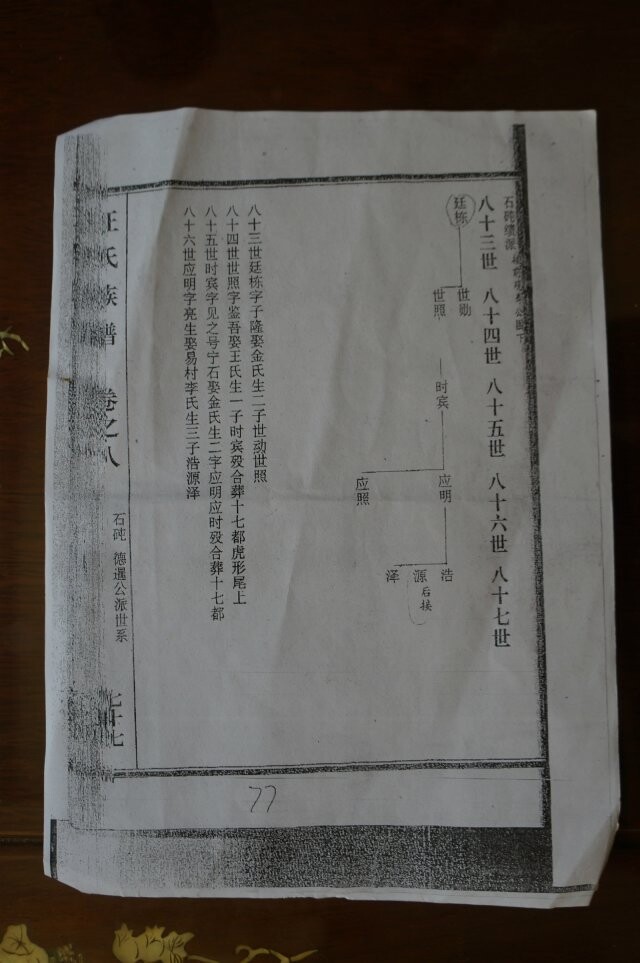 石砘绩派
八十三世 八十四世 八十五世 八十六世 八十七世
廷栋
世勋
世照
时宾
应明
应照
浩
源
泽
后接
八十三世廷栋字子隆娶金氏生二子世动世照
八十四世世照字鉴吾娶王氏生一子时宾殁合葬十七都虎形尾上
八十五世时宾字见之号宁石娶金氏生二字应明应时殁合葬十七都
八十六世应明字亮生娶易村李氏生三子浩源泽
汪氏族谱 卷之八
石砘 德暹公派世系
七十七
77